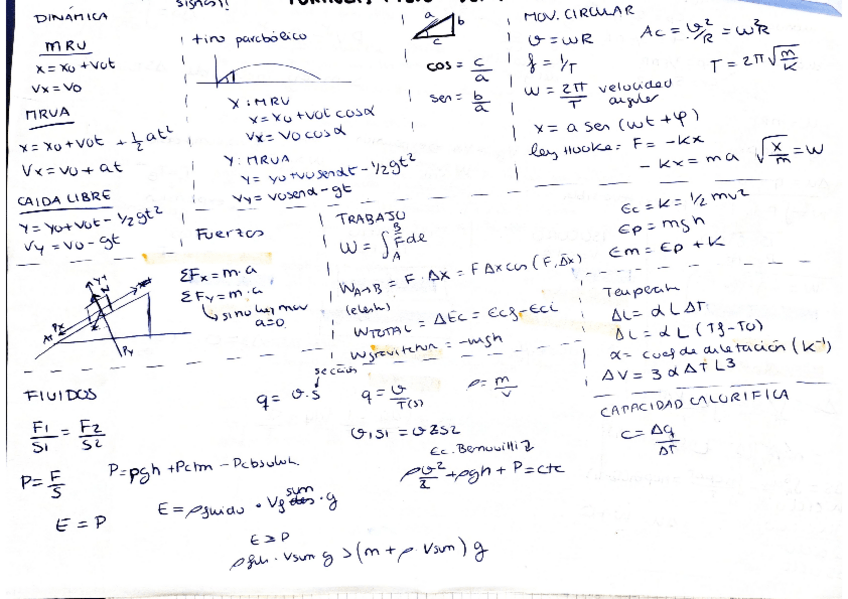 signos!!
DINÁMICA
MRU
x = x0 + v0t
Vx = v0
MRUA
x = x0 + v0t + 1/2 at²
Vx = v0 + at
CAIDA LIBRE
y = y0 + v0t - 1/2 gt²
Vy = v0 - gt
tiro parabólico
X: MRU
x = x0 + v0t cosα
Vx = v0 cosα
Y: MRUA
y = y0 + v0 senαt - 1/2 gt²
Vy = v0 senα - gt
a
b
c
cos = c/a
sen = b/a
MOV. CIRCULAR
v = wR
Ac = v²/R = w²R
f = 1/T
T = 2π √m/K
w = 2π/T velocidad angular
x = a sen (wt + φ)
ley Hooke: F = -kx
- kx = ma
√x/m = w
Fuerzas
Px
N
Py
ΣFx = m·a
ΣFy = m·a
si no hay mov
a=0
TRABAJO
W = ∫AB F de
WA→B = F · Δx = F Δx cos (F, Δx)
WTOTAL = ΔEc = Ecf - Eci
W gravitatorio = -mgh
Ec = K = 1/2 mv²
Ep = mgh
Em = Ep + K
ΔL = α L ΔT
ΔL = α L (Tf - T0)
α = coef de dilatación (K⁻¹)
ΔV = 3 α ΔT L3
CAPACIDAD CALORIFICA
c = Δq/ΔT
FLUIDOS
F1/S1 = F2/S2
sección
q = v·s
q = v/T(s)
ρ = m/v
v1S1 = v2S2
Ec. Bernouilli
ρv²/2 + ρgh + P = cte
P = F/S
P = ρgh + Patm - Pabsoluta
E = P
E = ρfluido · Vf sum · g
E ≥ P
ρfluh · Vsum g > (m + ρ · Vsum) g